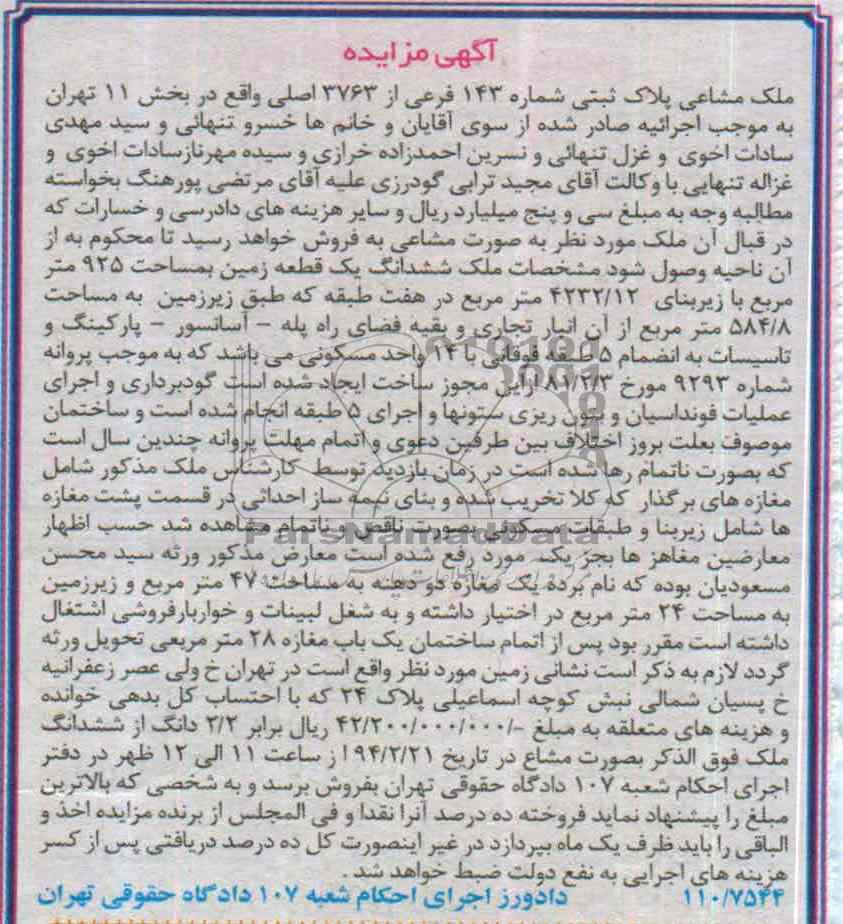 آگهی مزایده
ملک مشاعی پلاک ثبتی شماره ۱۴۳ فرعی از ۳۷۶۳ اصلی واقع در بخش ۱۱ تهران
به موجب اجرائیه صادر شده از سوی آقایان و خانم ها خسرو تنهائی و سید مهدی
سادات اخوی و غزل تنهائی و نسرین احمدزاده خرازی و سیده مهرنازسادات اخوی و
غزاله تنهایی با وکالت آقای مجید ترابی گودرزی علیه آقای مرتضی پورهنگ بخواسته
مطالبه وجه به مبلغ سی و پنج میلیارد ریال و سایر هزینه های دادرسی و خسارات که
در قبال آن ملک مورد نظر به صورت مشاعی به فروش خواهد رسید تا محکوم به از
آن ناحیه وصول شود مشخصات ملک ششدانگ یک قطعه زمین بمساحت ۹۲۵ متر
مربع با زیربنای ۴۲۳۲/۱۲ متر مربع در هفت طبقه که طبق زیرزمین به مساحت
۵۸۴/۸ متر مربع از آن انبار تجاری و بقیه فضای راه پله - آسانسور - پارکینگ و
تاسیسات به انضمام ۵ طبقه فوقانی با ۱۴ واحد مسکونی می باشد که به موجب پروانه
شماره ۹۲۹۳ مورخ ۸۱/۲/۳ ازاین مجوز ساخت ایجاد شده است گودبرداری و اجرای
عملیات فونداسیان و بتون ریزی ستونها و اجرای ۵ طبقه انجام شده است و ساختمان
موصوف بعلت بروز اختلاف بین طرفین دعوی و اتمام مهلت پروانه چندین سال است
که بصورت ناتمام رها شده است در زمان بازدید توسط کارشناس ملک مذکور شامل
مغازه های برگذار که کلا تخریب شده و بنای نیمه ساز احداثی در قسمت پشت مغازه
ها شامل زیربنا و طبقات مسکونی بصورت ناقص و ناتمام مشاهده شد حسب اظهار
معارضین مغاهز ها بجز یک مورد رفع شده است معارض مذکور ورثه سید محسن
مسعودیان بوده که نام برده یک مغازه دو دهنه به مساحت ۴۷ متر مربع و زیرزمین
به مساحت ۲۴ متر مربع در اختیار داشته و به شغل لبینات و خواربارفروشی اشتغال
داشته است مقرر بود پس از اتمام ساختمان یک باب مغازه ۲۸ متر مربعی تحویل ورثه
گردد لازم به ذکر است نشانی زمین مورد نظر واقع است در تهران خ ولی عصر زعفرانیه
خ پسیان شمالی نبش کوچه اسماعیلی پلاک ۲۴ که با احتساب کل بدهی خوانده
و هزینه های متعلقه به مبلغ -/۴۲/۲۰۰/۰۰۰/۰۰۰ ریال برابر ۲/۲ دانگ از ششدانگ
ملک فوق الذکر بصورت مشاع در تاریخ ۹۴/۲/۲۱ ا ز ساعت ۱۱ الی ۱۲ ظهر در دفتر
اجرای احکام شعبه ۱۰۷ دادگاه حقوقی تهران بفروش برسد و به شخصی که بالاترین
مبلغ را پیشنهاد نماید فروخته ده درصد آنرا نقدا و فی المجلس از برنده مزایده اخذ و
الباقی را باید ظرف یک ماه بپردازد در غیر اینصورت کل ده درصد دریافتی پس از کسر
هزینه های اجرایی به نفع دولت ضبط خواهد شد .
۱۱۰/۷۵۴۴ دادورز اجرای احکام شعبه ۱۰۷ دادگاه حقوقی تهران
ParsNamadData